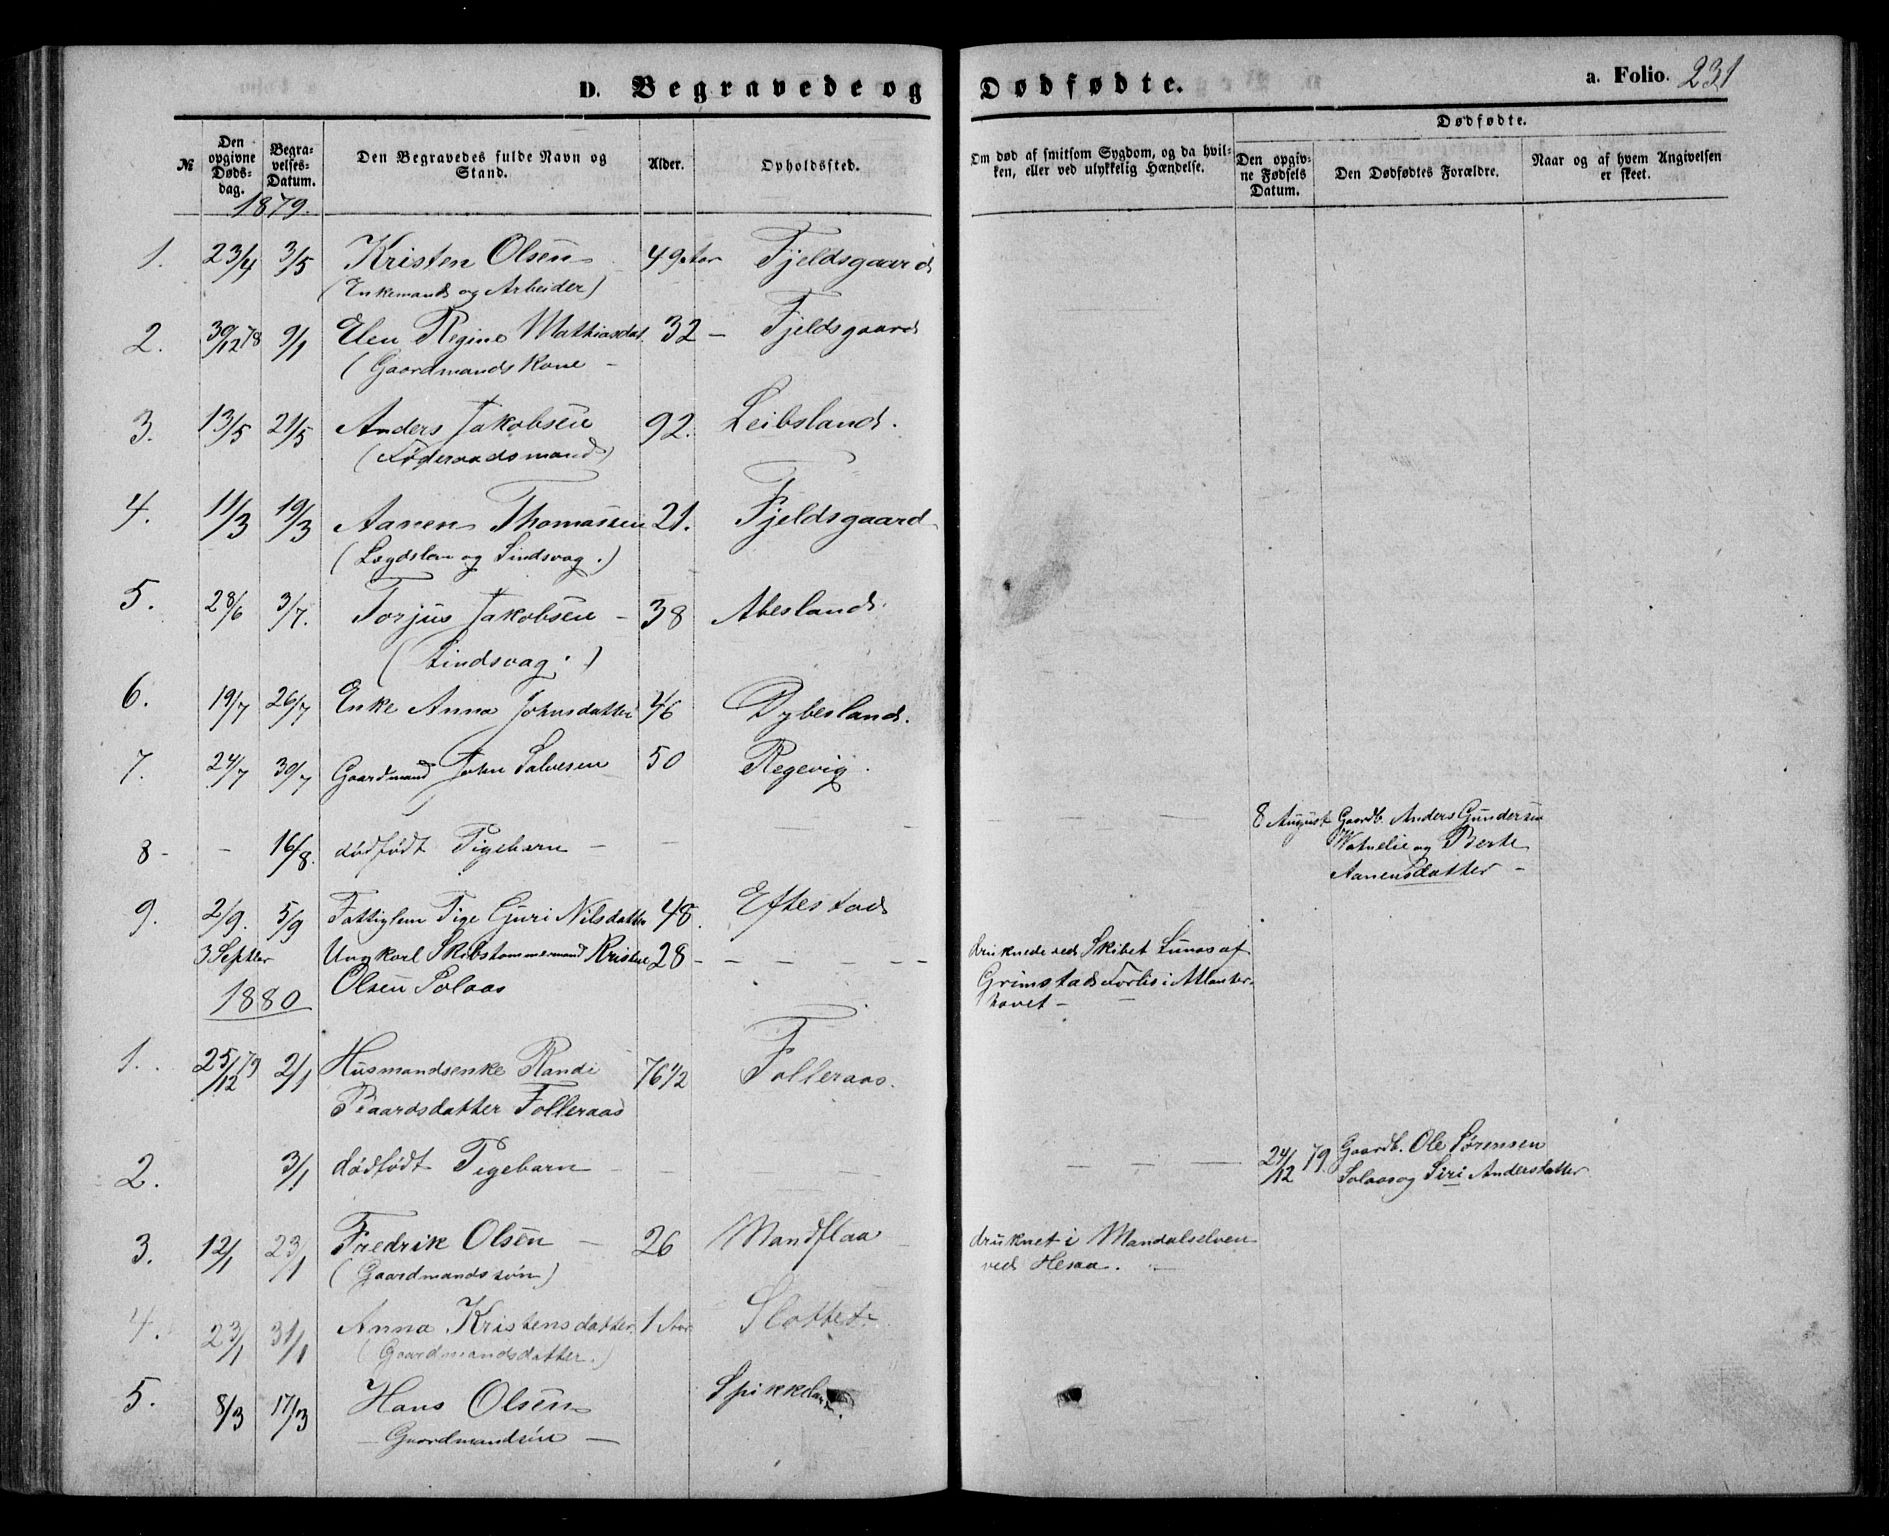 D. Begravede og Dødfødte. a. Folio. 231
№
Den opgivne Døds-dag.
Begra-velses-Datum.
Den Begravedes fulde Navn og Stand.
Alder.
Opholdssted.
Om død af smitsom Sygdom, og da hvil-ken, eller ved ulykkelig Hændelse.
Dødfødte.
Den opgiv-ne Fødsels Datum.
Den Dødfødtes Forældre.
Naar og af hvem Angivelsen er skeet.
1879.
1. 23/4 3/5 Kristen Olsen 49 Aar Fjeldsgaard
(Enkemand og Arbeider)
2. 30/12 78 9/1 Elen Regine Mathiasdat. 32 – Fjeldsgaard
(Gaardmandskone –
3. 13/5 21/5 Anders Jakobsen 92. Leibsland.
(Føderaadsmand)
4. 11/3 19/3 Aanen Thomassen 21. Fjeldsgaard
(Lægdslem og Sindsvag.)
5. 28/6 3/7. Torjus Jakobsen – 38 Abesland.
(Sindsvag.)
6. 19/7 26/7 Enke Anna Johnsdatter 46 Dybesland.
7. 24/7 30/7 Gaardmand John Salvesen 50 Regevig.
8 – – 16/8. dødfødt Pigebarn – – 8 August Gaardb. Anders Gundersen
Vatnelie og Berte
Aanensdatter –
9. 2/9. 5/9 Fattiglem Pige Guri Nilsdatter 48. Eftestad
3 Septbr Ungkarl Skibstømmermand Kristen 28 – – – – – – druknede ved Skibet Lunas af
Olsen Solaas Grimstads Forlis i Atlanter-
havet –
1880
1. 25/12 79 2/1 Husmandsenke Randi 76 1/2 Folleraas.
Baardsdatter Folleraas
2. 3/1 dødfødt Pigebarn – – – – 24/12 79 Gaardb. Ole Sørensen
Solaas og Siri Andersdatter
3. 12/1 23/1 Fredrik Olsen – 26 Mandflaa druknet i Mandalselven
(Gaardmandssøn) ved Hesaa.
4. 23/1 31/1 Anna Kristensdatter. 1 Aar Slottet.
(Gaardmandsdatter.)
5. 8/3 17/3 Hans Olsen
– Gaardmandsøn –